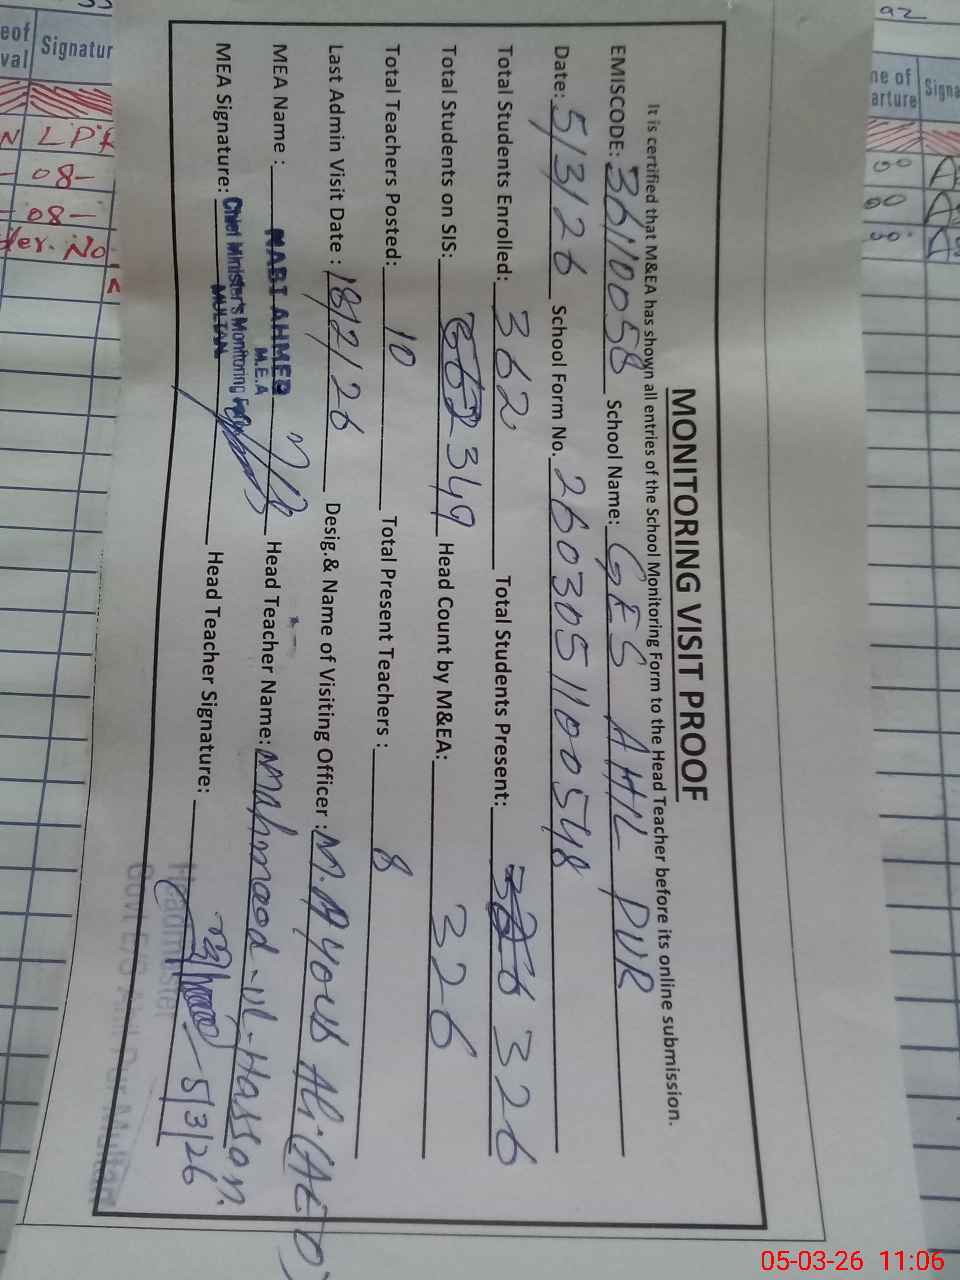 MONITORING VISIT PROOF
It is certified that M&EA has shown all entries of the School Monitoring Form to the Head Teacher before its online submission.
EMISCODE: 36110058 School Name: GES AHIL PUR
Date: 5/3/26 School Form No. 2603051100548
Total Students Enrolled: 362 Total Students Present: 326
Total Students on SIS: 349 Head Count by M&EA: 326
Total Teachers Posted: 10 Total Present Teachers : 8
Last Admin Visit Date : 18/2/26 Desig.& Name of Visiting Officer : M. Ayoub Ali (AEO)
MEA Name : NABI AHMED Head Teacher Name: Mahmood-ul-Hassan
M.E.A
MEA Signature: Chief Minister's Monitoring Head Teacher Signature: 5/3/26
MULTAN
Headmaster
Govt E/S Ahil Pur Multan
Signatur
LPR
-08-
-08-
No
05-03-26 11:06